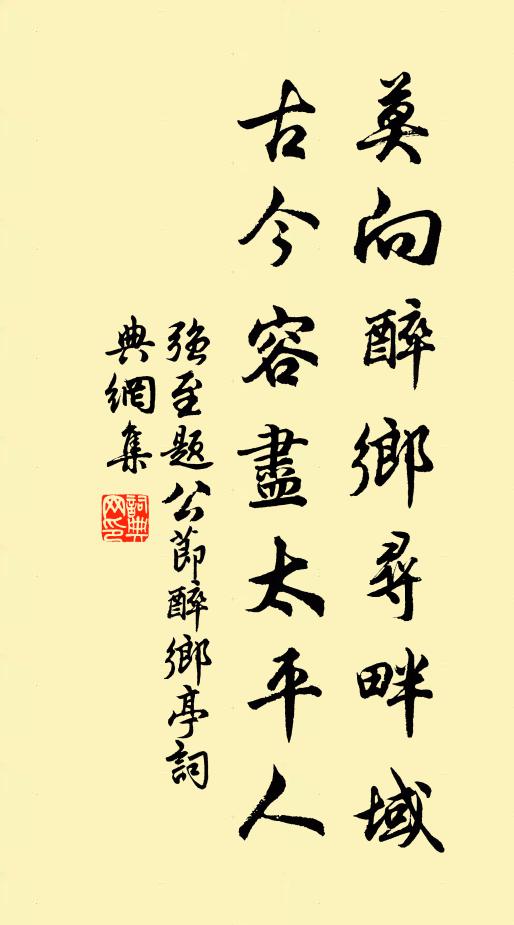 莫向醉鄉尋畔域
古今容盡太平人
強至題公節醉鄉亭詞
典網集
詞典網印